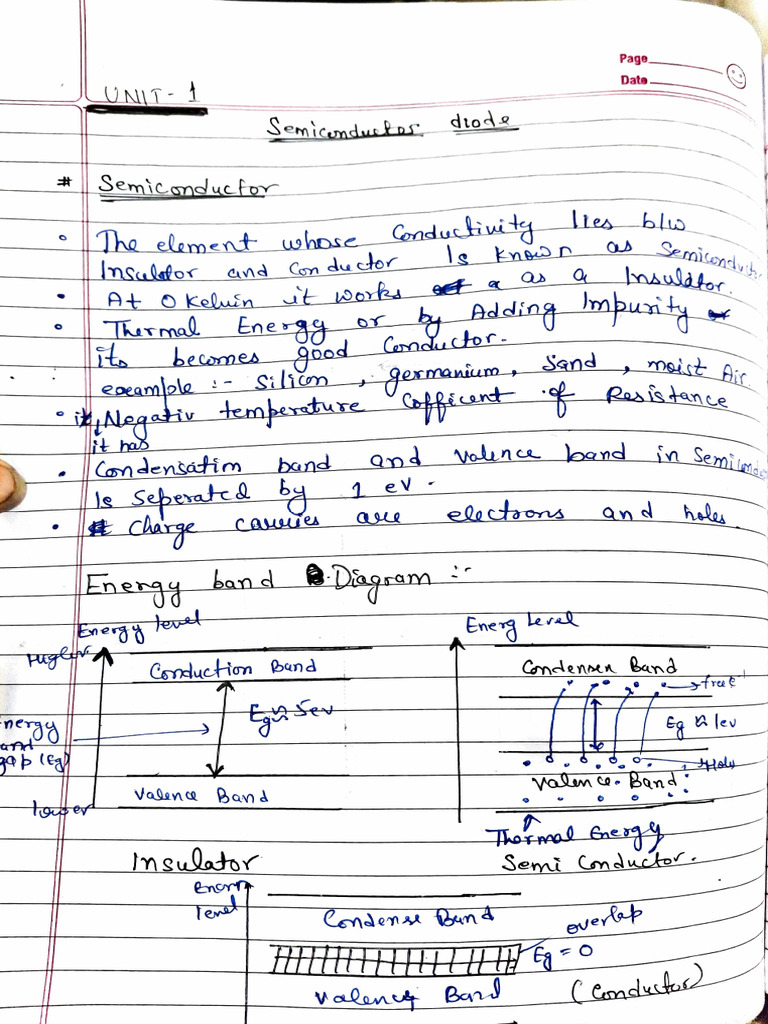 Page
Date
UNIT-1
Semiconductor diode
# Semiconductor
• The element whose Conductivity lies b/w
Insulator and conductor Is known as Semiconductor
• At 0 kelvin it works as a Insulator.
• Thermal Energy or by Adding Impurity
its becomes good Conductor.
example :- Silicon, germanium, Sand, moist Air
• it, Negativ temperature Cofficent of Resistance
it has
• Condensation band and valence band in Semicondu
Is seperated by 1 ev.
• Charge carries are electrons and holes.
Energy band Diagram :-
Energy level
Higher
Conduction Band
Eg ≈ 5ev
nergy
and
gap (Eg)
Valence Band
lower
Insulator
Energ Level
Condensen Band
→ free e
Eg ≈ 1ev
→ Hole
Valence Band
Thermal Energy
Semi Conductor.
Energy
level
Condense Band
overlap
Eg = 0
Valence Band
(Conductor)